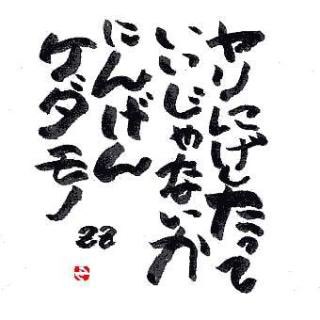 ヤリにげしたって
いいじゃないか
にんげん
ケダモノ